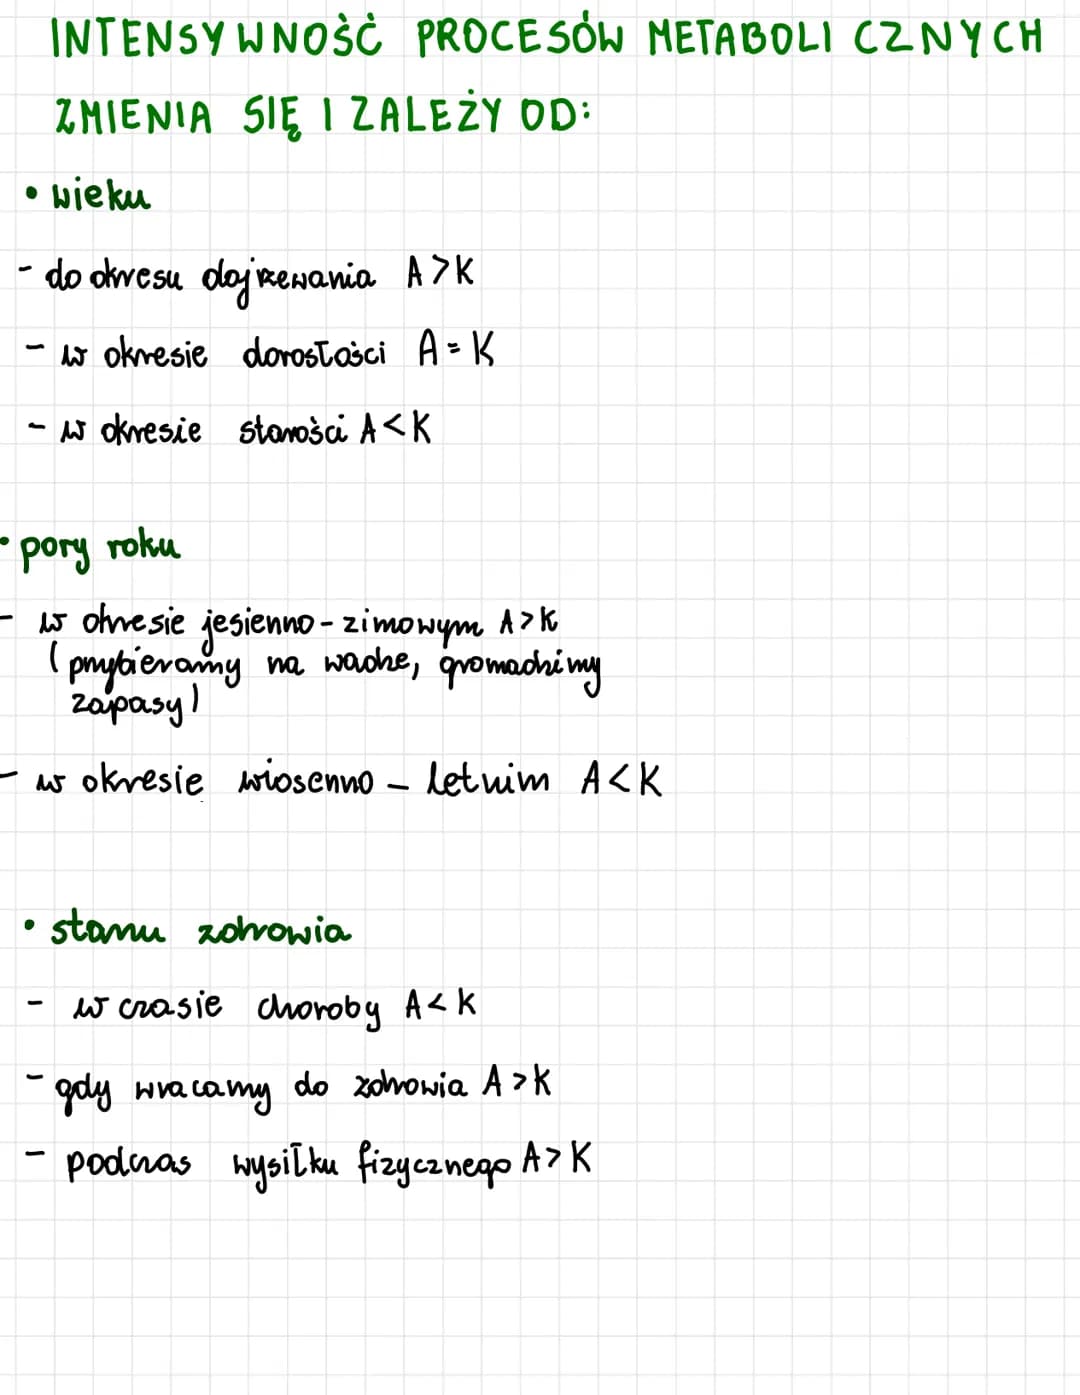 INTENSYWNOŚĆ PROCESÓW METABOLICZNYCH
ZMIENIA SIĘ I ZALEŻY OD:
• wieku
- do okresu dojrzewania A>K
- w okresie dorosłości A=K
- w okresie starości A<K
• pory roku
- w okresie jesienno-zimowym A>K
(przybieramy na wadze, gromadzimy
zapasy)
- w okresie wiosenno – letnim A<K
• stanu zdrowia
- w czasie choroby A<K
- gdy wracamy do zdrowia A>K
- podczas wysiłku fizycznego A>K